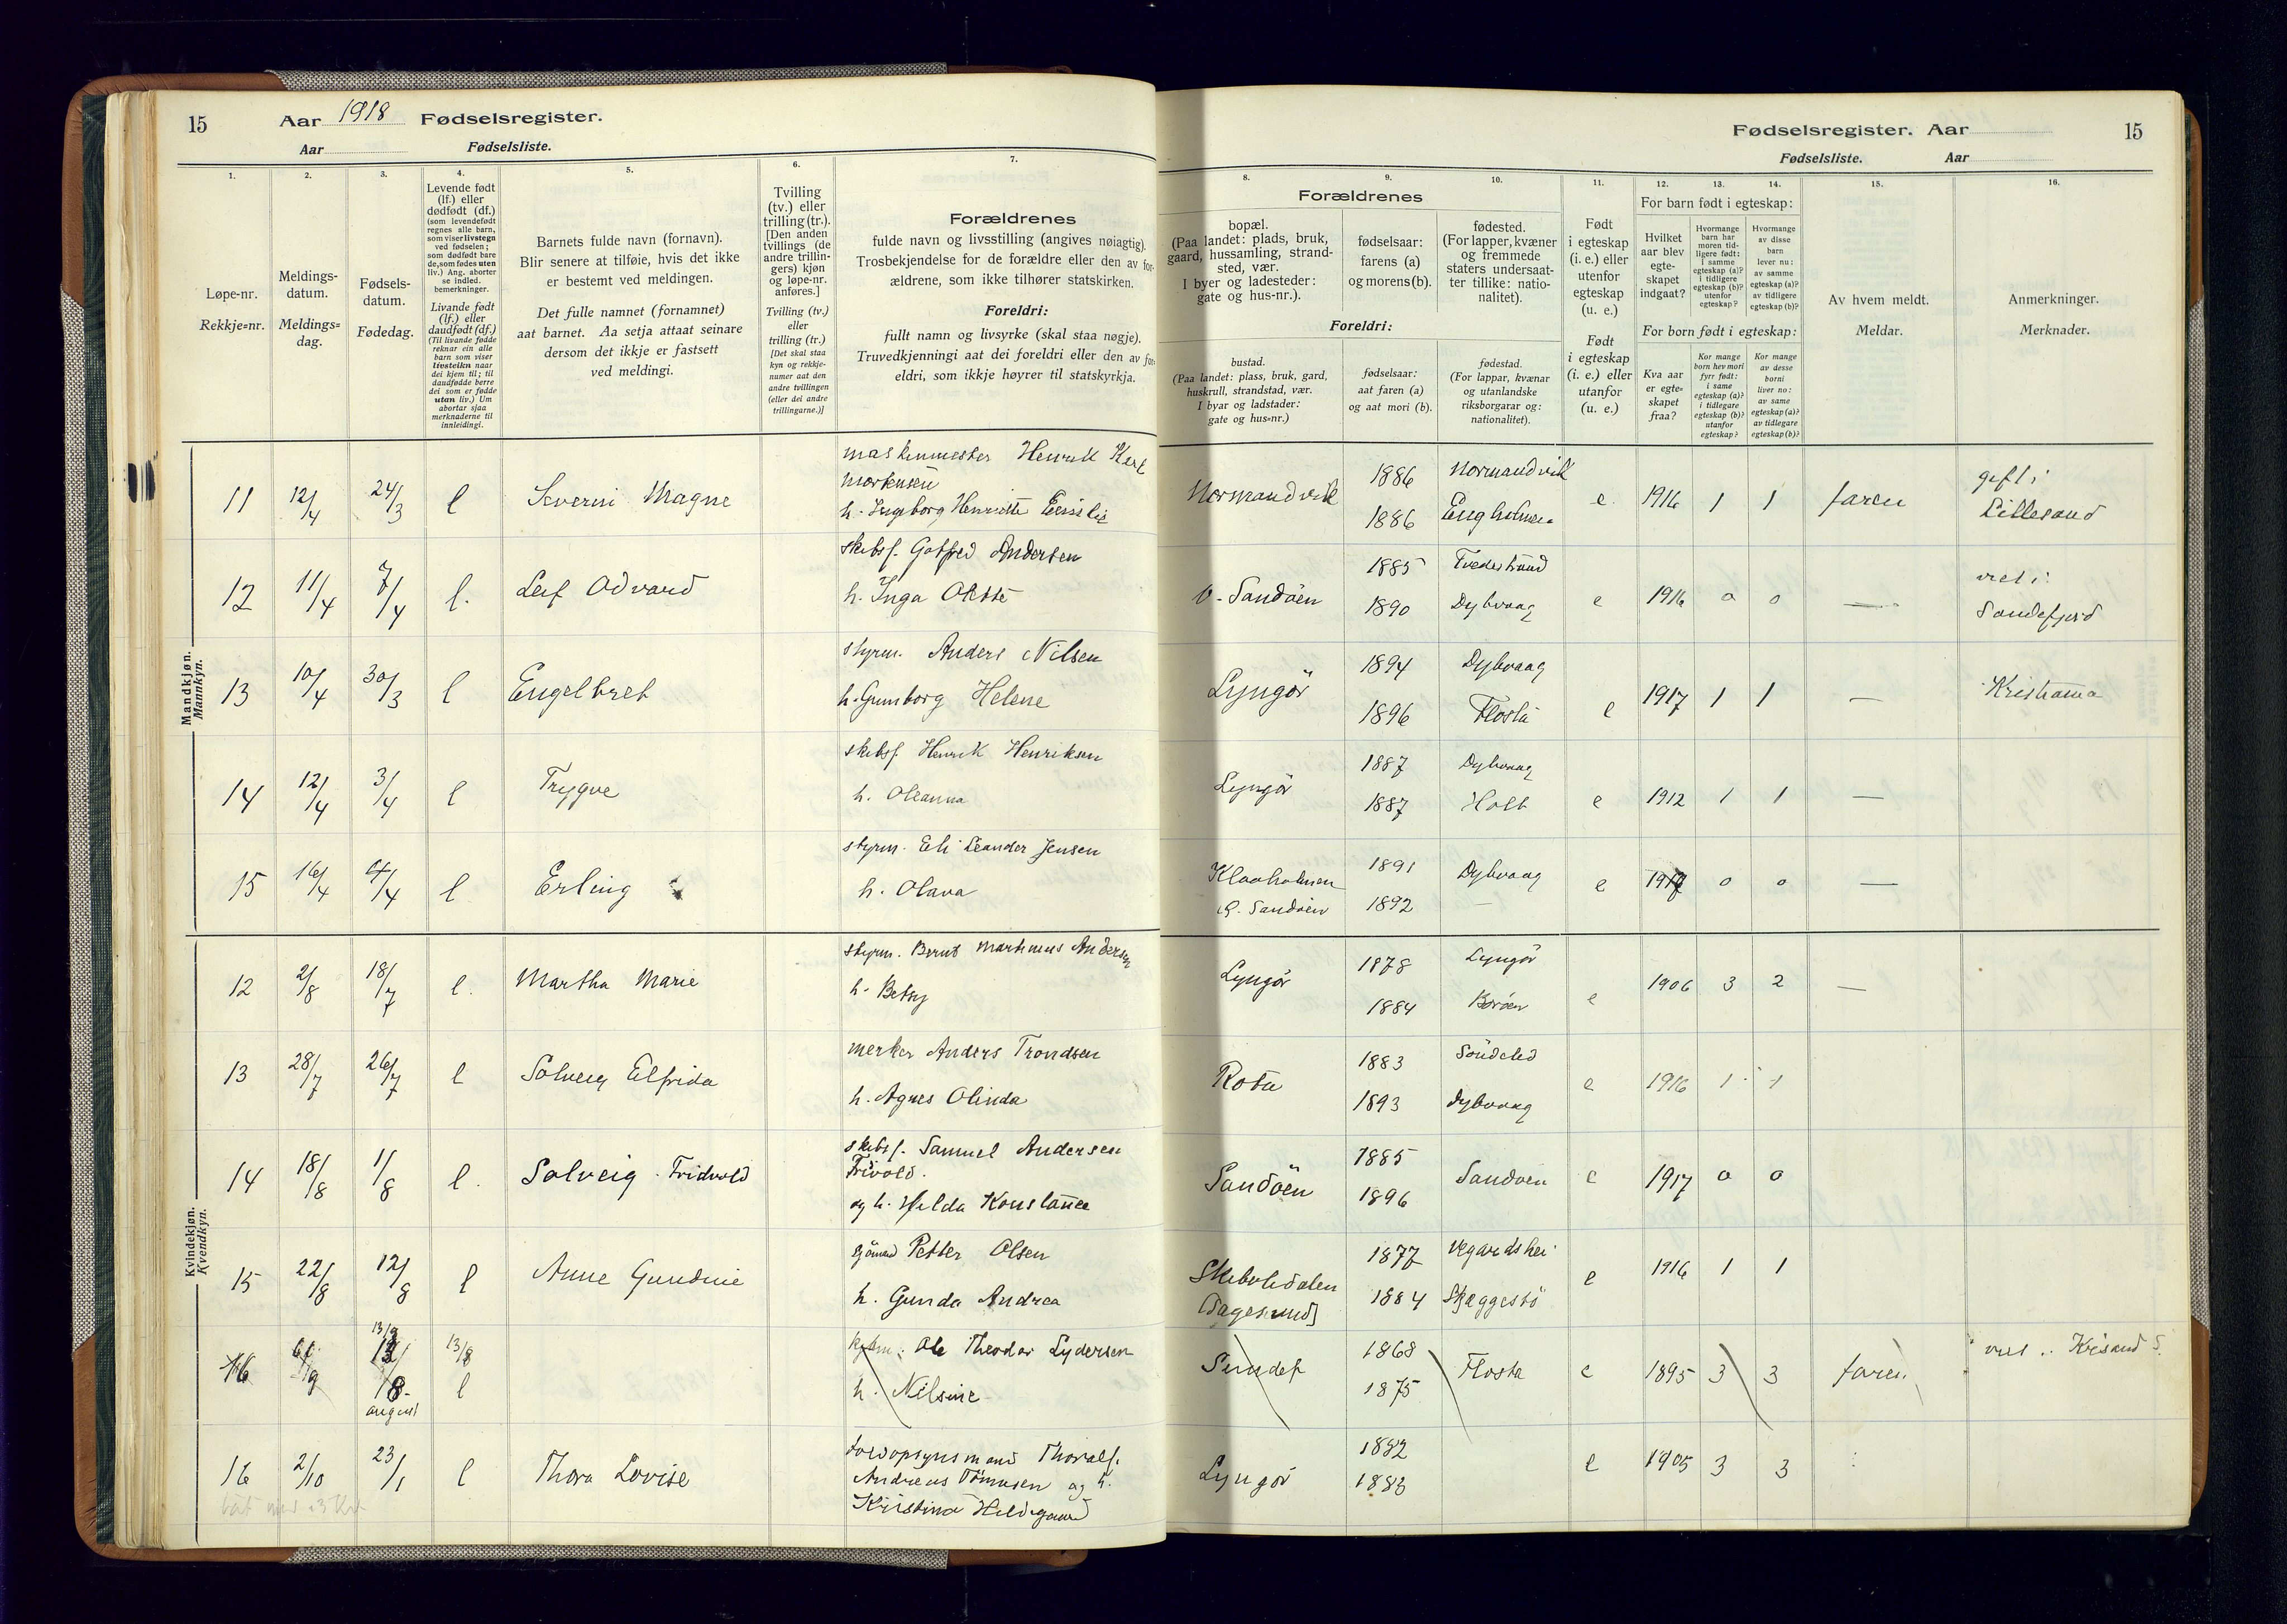 15
Aar 1918 Fødselsregister.
Aar Fødselsliste.
Fødselsregister. Aar
15
Fødselsliste. Aar
1. 2. 3. 4. 5. 6. 7. 8. 9. 10. 11. 12. 13. 14. 15. 16.
Løpe-nr.
Rekkje=nr.
Meldings-
datum.
Meldings=
dag.
Fødsels-
datum.
Fødedag.
Levende født
(lf.) eller
dødfødt (df.)
(som levendefødt
regnes alle barn,
som viser livstegn
ved fødselen;
som dødfødt bare
de, som fødes uten
liv.) Ang. aborter
se indled.
bemerkninger.
Livande født
(lf.) eller
daudfødt (df.)
(Til livande fødde
reknar ein alle
barn som viser
livsteikn naar
dei kjem til; til
daudfødde berre
dei som er fødde
utan liv.) Um
abortar sjaa
merknaderne til
innleidingi.
Barnets fulde navn (fornavn).
Blir senere at tilføie, hvis det ikke
er bestemt ved meldingen.
Det fulle namnet (fornamnet)
aat barnet. Aa setja attaat seinare
dersom det ikkje er fastsett
ved meldingi.
Tvilling
(tv.) eller
trilling (tr.).
[Den anden
tvillings (de
andre trillin-
gers) kjøn
og løpe-nr.
anføres.]
Tvilling (tv.)
eller
trilling (tr.)
[Det skal staa
kyn og rekkje-
numer aat den
andre tvillingen
(eller dei andre
trillingarne.)]
Forældrenes
fulde navn og livsstilling (angives nøiagtig).
Trosbekjendelse for de forældre eller den av for-
ældrene, som ikke tilhører statskirken.
Foreldri:
fullt namn og livsyrke (skal staa nøgje).
Truvedkjenningi aat dei foreldri eller den av for-
eldri, som ikkje høyrer til statskyrkja.
Forældrenes
bopæl.
(Paa landet: plads, bruk,
gaard, hussamling, strand-
sted, vær.
I byer og ladesteder:
gate og hus-nr.).
fødselsaar:
farens (a)
og morens (b).
fødested.
(For lapper, kvæner
og fremmede
staters undersaat-
ter tillike: natio-
nalitet).
Foreldri:
bustad.
(Paa landet: plass, bruk, gard,
huskrull, strandstad, vær.
I byar og ladstader:
gate og hus=nr.)
fødselsaar:
aat faren (a)
og aat mori (b).
fødestad.
(For lappar, kvænar
og utanlandske
riksborgarar og:
nationalitet).
Født
i egteskap
(i. e.) eller
utenfor
egteskap
(u. e.)
Født
i egteskap
(i. e.) eller
utanfor
(u. e.)
For barn født i egteskap:
Hvilket
aar blev
egte-
skapet
indgaat?
Hvormange
barn har
moren tid-
ligere født:
i samme
egteskap (a)?
i tidligere
egteskap (b)?
utenfor
egteskap?
Hvormange
av disse
barn
lever nu:
av samme
egteskap (a)?
av tidligere
egteskap (b)?
For born født i egteskap:
Kva aar
er egte=
skapet
fraa?
Kor mange
born hev mori
fyrr født:
i same
egteskap (a)?
i tidlegare
egteskap (b)?
utanfor
egteskap?
Kor mange
av desse
borni
liver no:
av same
egteskap (a)?
av tidlegare
egteskap (b)?
Av hvem meldt.
Meldar.
Anmerkninger.
Merknader.
Mandkjøn.
Mannkyn.
11 12/4 24/3 l Severin Magne
maskinmester Henrik
Mortensen
h. Ingeborg
Normandvik 1886 Normandvik
1886 Engholmen
e. 1916 1 1 faren
gift i
Lillesand
12 11/4 7/4 l. Leif Odvard
skibsf. Gotfred Andersen
h. Inga
Sandöen 1885 Tvedestrand
1890 Dybvaag
e 1916 0 0 —
viet i
Sandefjord
13 10/4 30/3 l Engelbret
styrm. Anders Nilsen
h. Gunborg Helene
Lyngör 1894 Dybvaag
1896 Flosta
e 1917 1 1 — Kristiania
14 12/4 3/4 l Trygve
skibsf. Henrik Henriksen
h. Oleanna
Lyngör 1887 Dybvaag
1887 Holt
e 1912 1 1 —
15 16/4 4/4 l Erling
styrm. Eli Leander Jensen
h. Olava
Klaaholmen
Sandöen
1891 Dybvaag
1892 —
e 1917 0 0 —
Kvindekjøn.
Kvendkyn.
12 2/8 18/7 l. Martha Marie
styrm. Bernt Martinius Andersen
h. Betsy
Lyngör 1878 Lyngör
1884 Boröen
e 1906 3 2 —
13 28/7 26/7 l Solveig Elfrida
merker Anders Trondsen
h. Agnes Olinda
Rota 1883 Söndeled
1893 Dybvaag
e 1916 1 1
14 18/8 1/8 l. Solveig Fridvold
skibsf. Samuel Andersen
Frivold.
og h. Hilda Konstance
Sandöen 1885 Sandöen
1896
e 1917 0 0
15 22/8 12/8 l Anne Gundine
sjömand Petter Olsen
h. Gunda Andrea
Skibvikdalen
[Sagesund]
1877 Vegardshei
1884 Skjæggestö
e 1916 1 1
16 13/8 13/8
august
l
Ole Theodor Lydersen
h. Nilsine
1868 Flosta
1875
e 1895 3 3 faren
viet i Krisand S.
16 2/10 23/1 l Thora Lovise
Thoralf
Andreas Tönnesen og h.
Kristina Hildegaard
Lyngör 1882
1883
e 1905 3 3